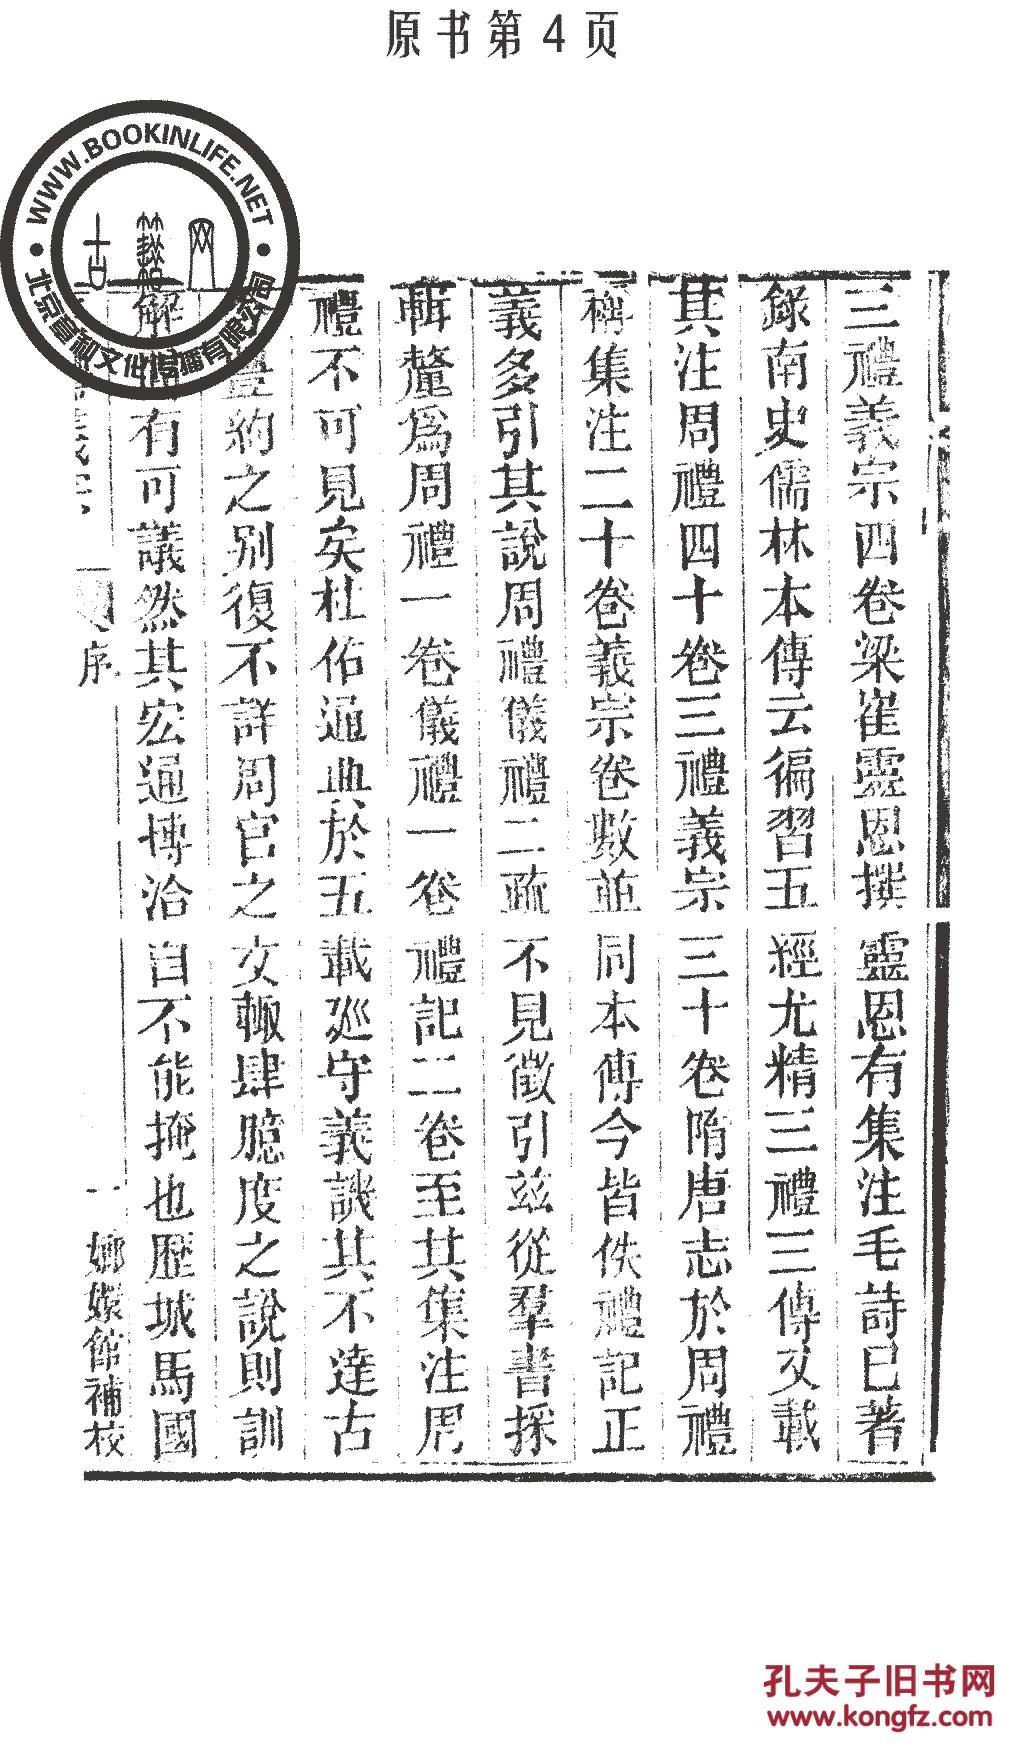 原书第4页
WWW.BOOKINLIFE.NET
三禮義宗四卷梁崔靈恩撰靈恩有集注毛詩已著
錄南史儒林本傳云徧習五經尤精三禮三傳又載
其注周禮四十卷三禮義宗三十卷隋唐志於周禮
稱集注二十卷義宗卷數並同本傳今皆佚禮記正
義多引其說周禮儀禮二疏不見徵引玆從羣書採
輯釐爲周禮一卷儀禮一卷禮記二卷至其集注周
禮不可見矣杜佑通典於五載廵守義譏其不達古
豐約之别復不詳周官之文輒肆臆度之說則訓
解有可議然其宏通博洽自不能掩也歷城馬國
序
一
嫏嬛館補校
孔夫子旧书网
www.kongfz.com